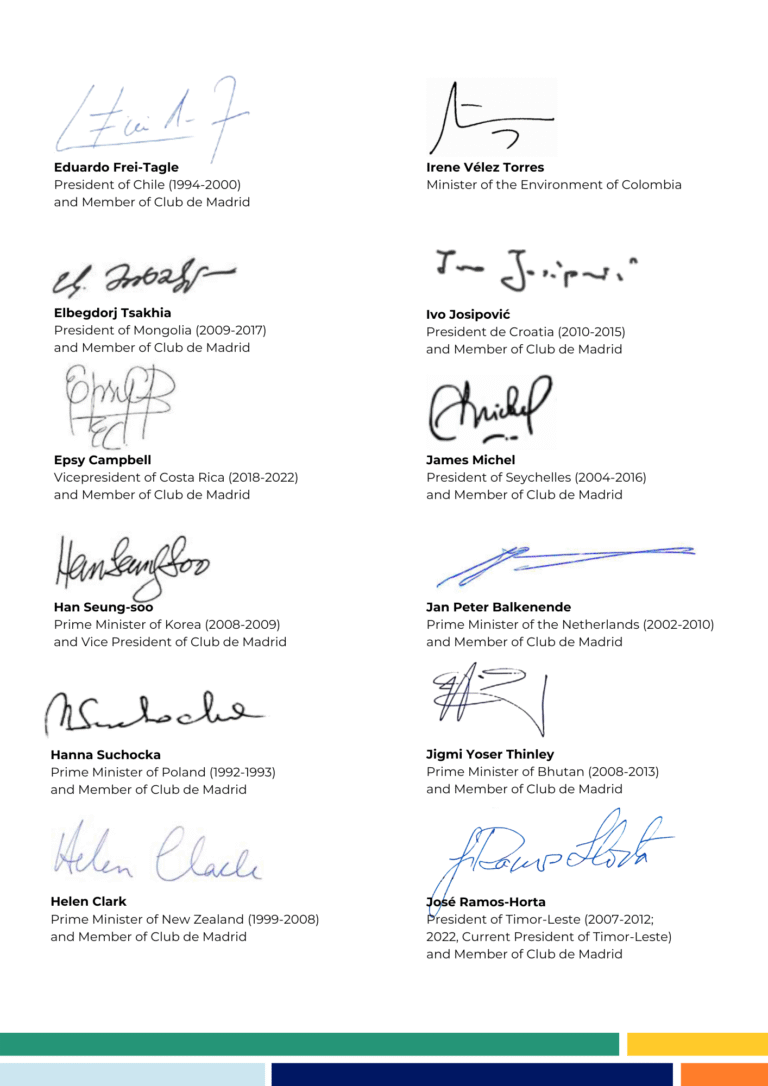 Eduardo Frei-Tagle
President of Chile (1994-2000)
and Member of Club de Madrid
Elbegdorj Tsakhia
President of Mongolia (2009-2017)
and Member of Club de Madrid
Epsy Campbell
Vicepresident of Costa Rica (2018-2022)
and Member of Club de Madrid
Han Seung-soo
Han Seung-soo
Prime Minister of Korea (2008-2009)
and Vice President of Club de Madrid
Hanna Suchocka
Prime Minister of Poland (1992-1993)
and Member of Club de Madrid
Helen Clark
Helen Clark
Prime Minister of New Zealand (1999-2008)
and Member of Club de Madrid
Irene Vélez Torres
Minister of the Environment of Colombia
Ivo Josipović
President de Croatia (2010-2015)
and Member of Club de Madrid
James Michel
President of Seychelles (2004-2016)
and Member of Club de Madrid
Jan Peter Balkenende
Prime Minister of the Netherlands (2002-2010)
and Member of Club de Madrid
Jigmi Yoser Thinley
Prime Minister of Bhutan (2008-2013)
and Member of Club de Madrid
José Ramos-Horta
President of Timor-Leste (2007-2012;
2022, Current President of Timor-Leste)
and Member of Club de Madrid